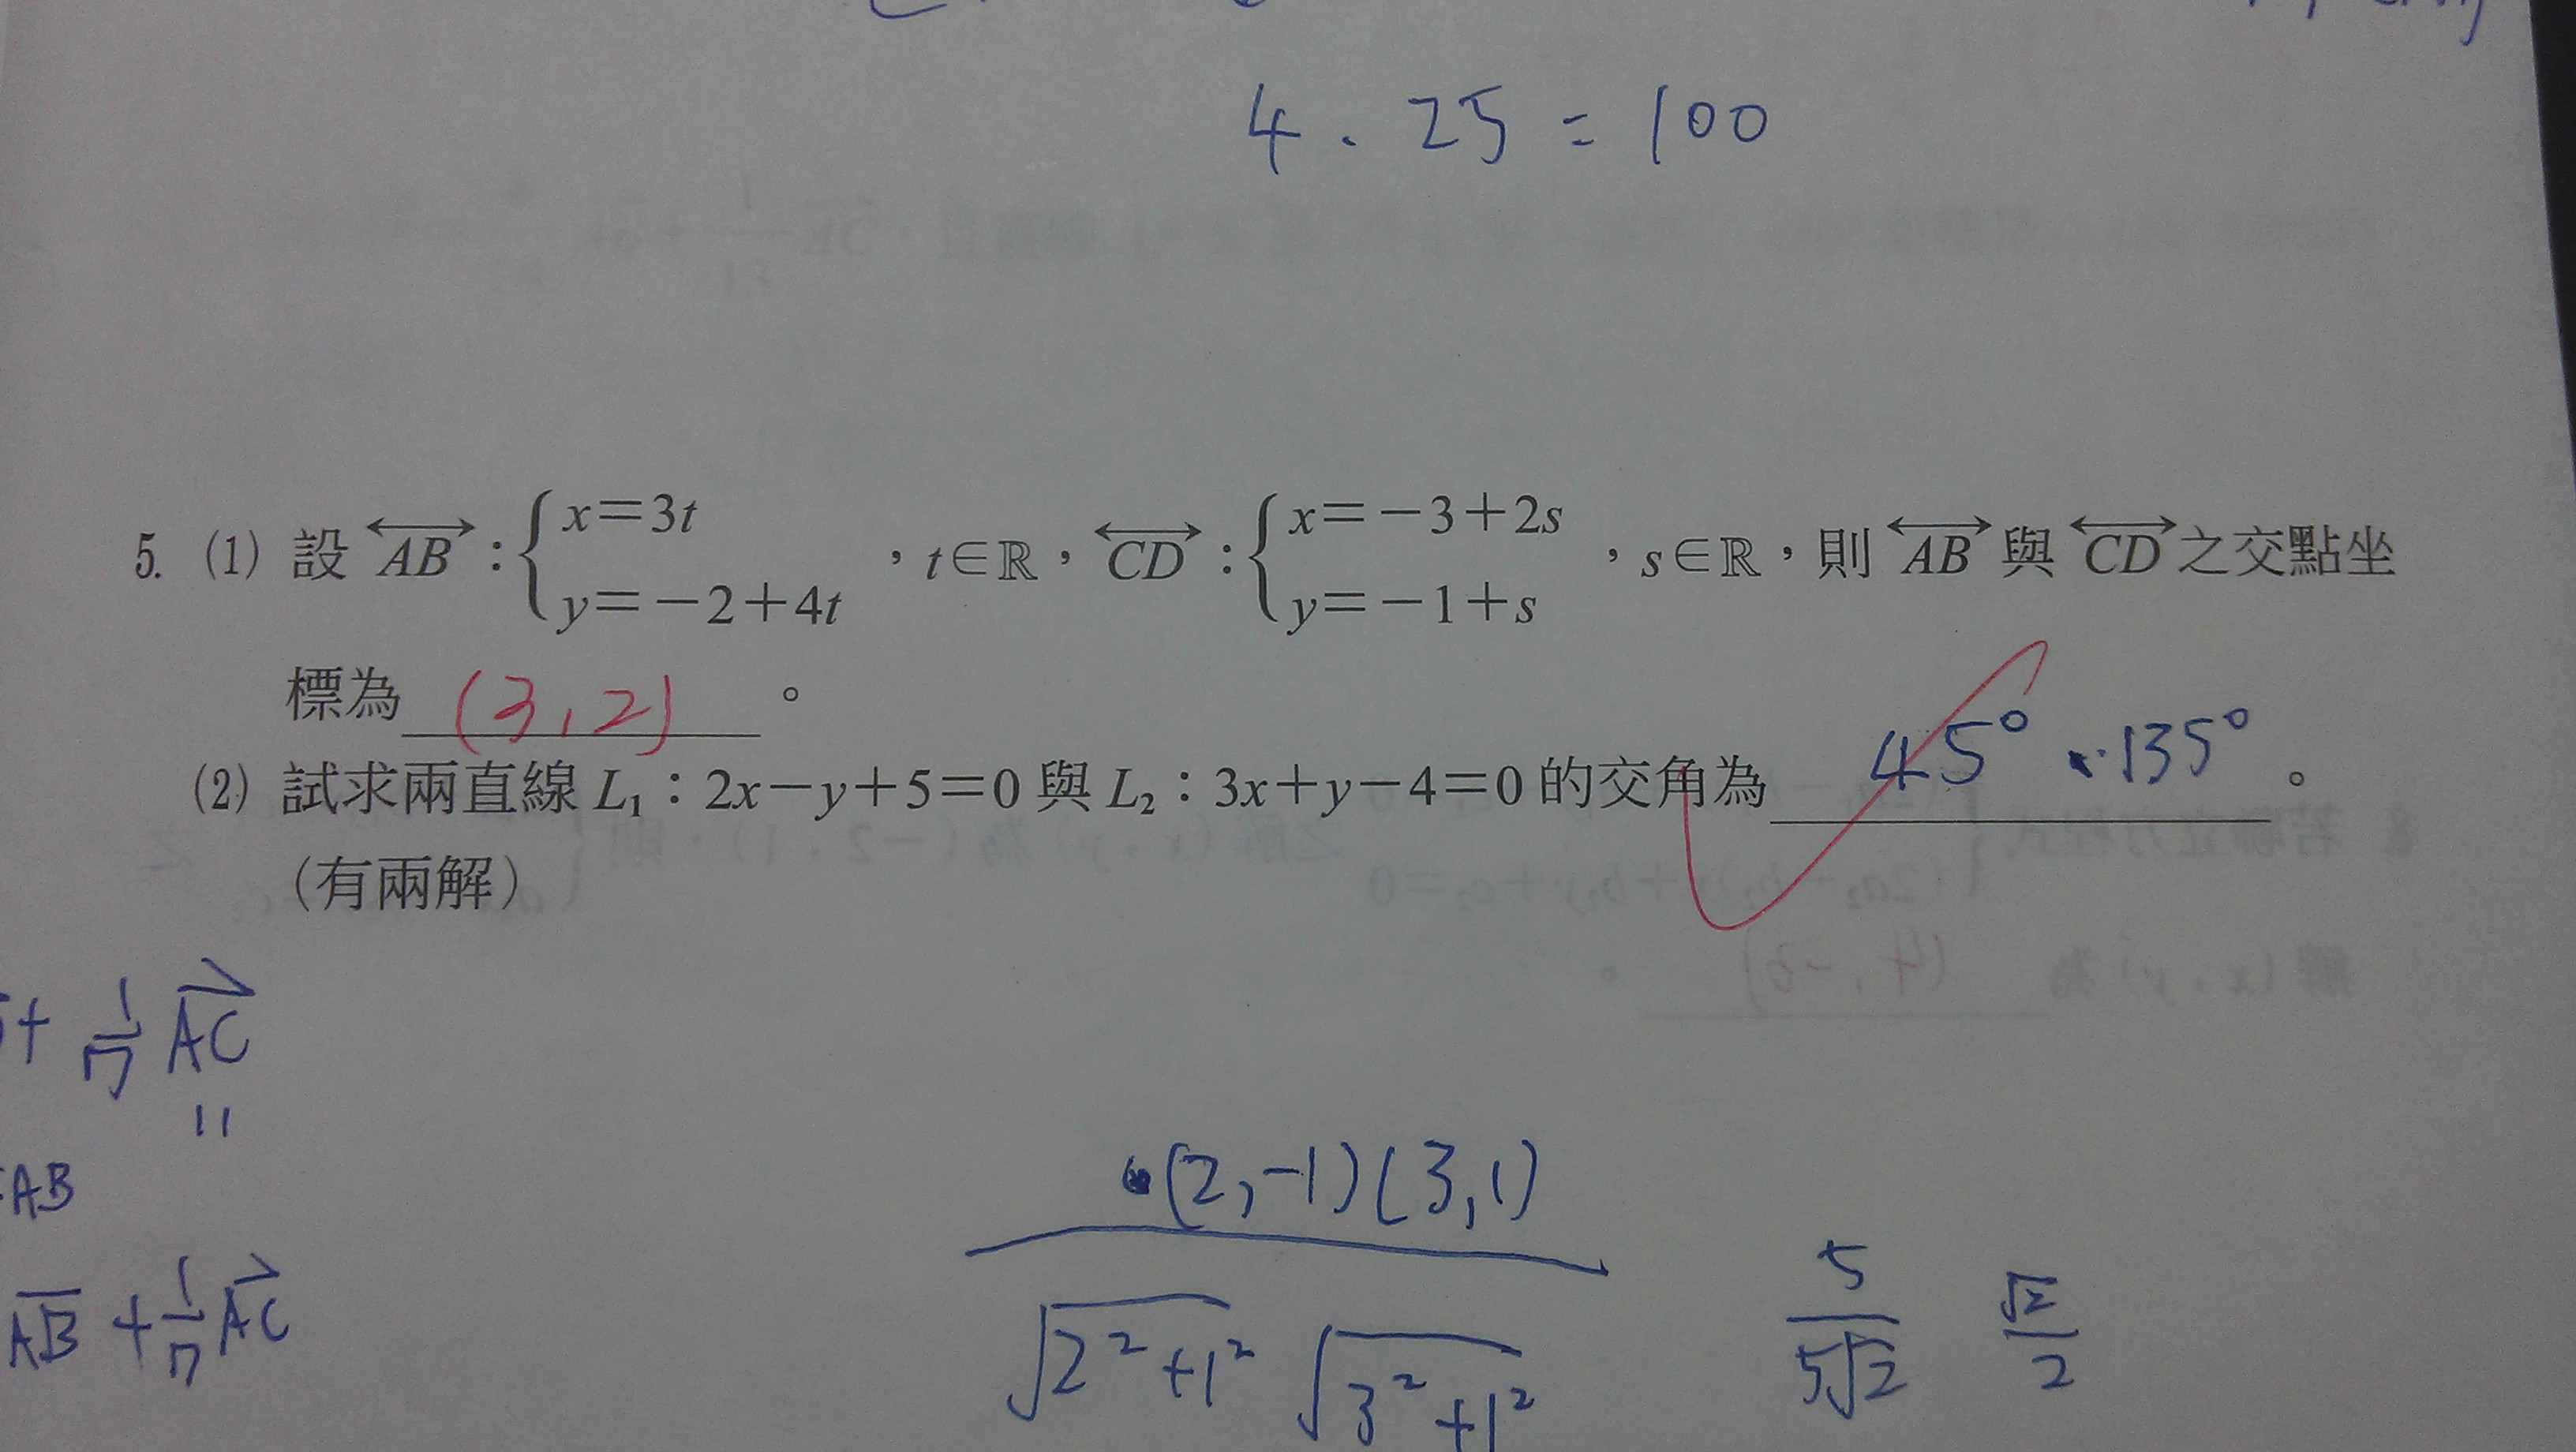 4 . 25 = 100
5. (1) 設 AB：{x=3t y=-2+4t ，t∈ℝ，CD：{x=-3+2s y=-1+s ，s∈ℝ，則 AB 與 CD 之交點坐
標為 (3,2) 。
(2) 試求兩直線 L₁：2x-y+5=0 與 L₂：3x+y-4=0 的交角為 45° 、135° 。
(有兩解)
+ 1/n AC
=
AB
AB + 1/n AC
(2,-1)(3,1)
√2²+1² √3²+1²
5/5√2 √2/2